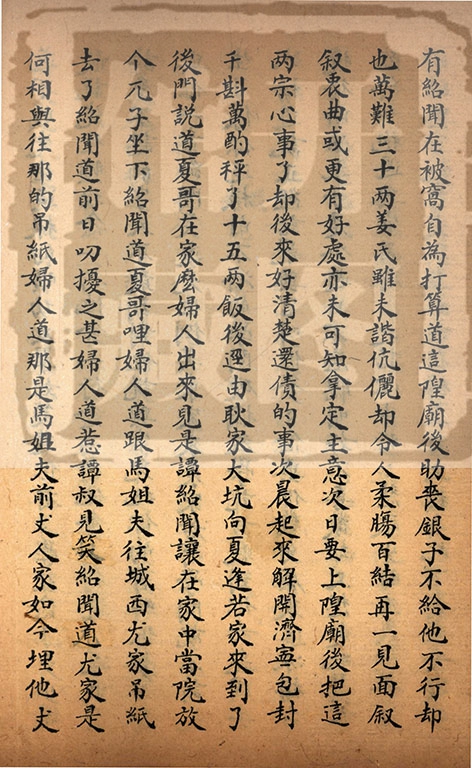 有紹聞在被窩自為打算道這隍廟後助喪銀子不給他不行却
也萬難三十两姜氏雖未諧伉儷却令人柔腸百結再一見面叙
叙衷曲或更有好處亦未可知拿定主意次日要上隍廟後把這
两宗心事了却後來好清楚還債的事次晨起來解開濟寧包封
千斟萬酌秤了十五两飯後逕由耿家大坑向夏逢若家來到了
後門説道夏哥在家麽婦人出來見是譚紹聞讓在家中當院放
个兀子坐下紹聞道夏哥哩婦人道跟馬姐夫往城西尤家吊紙
去了紹聞道前日叨擾之甚婦人道惹譚叔見笑紹聞道尤家是
何相與往那的吊紙婦人道那是馬姐夫前丈人家如今埋他丈